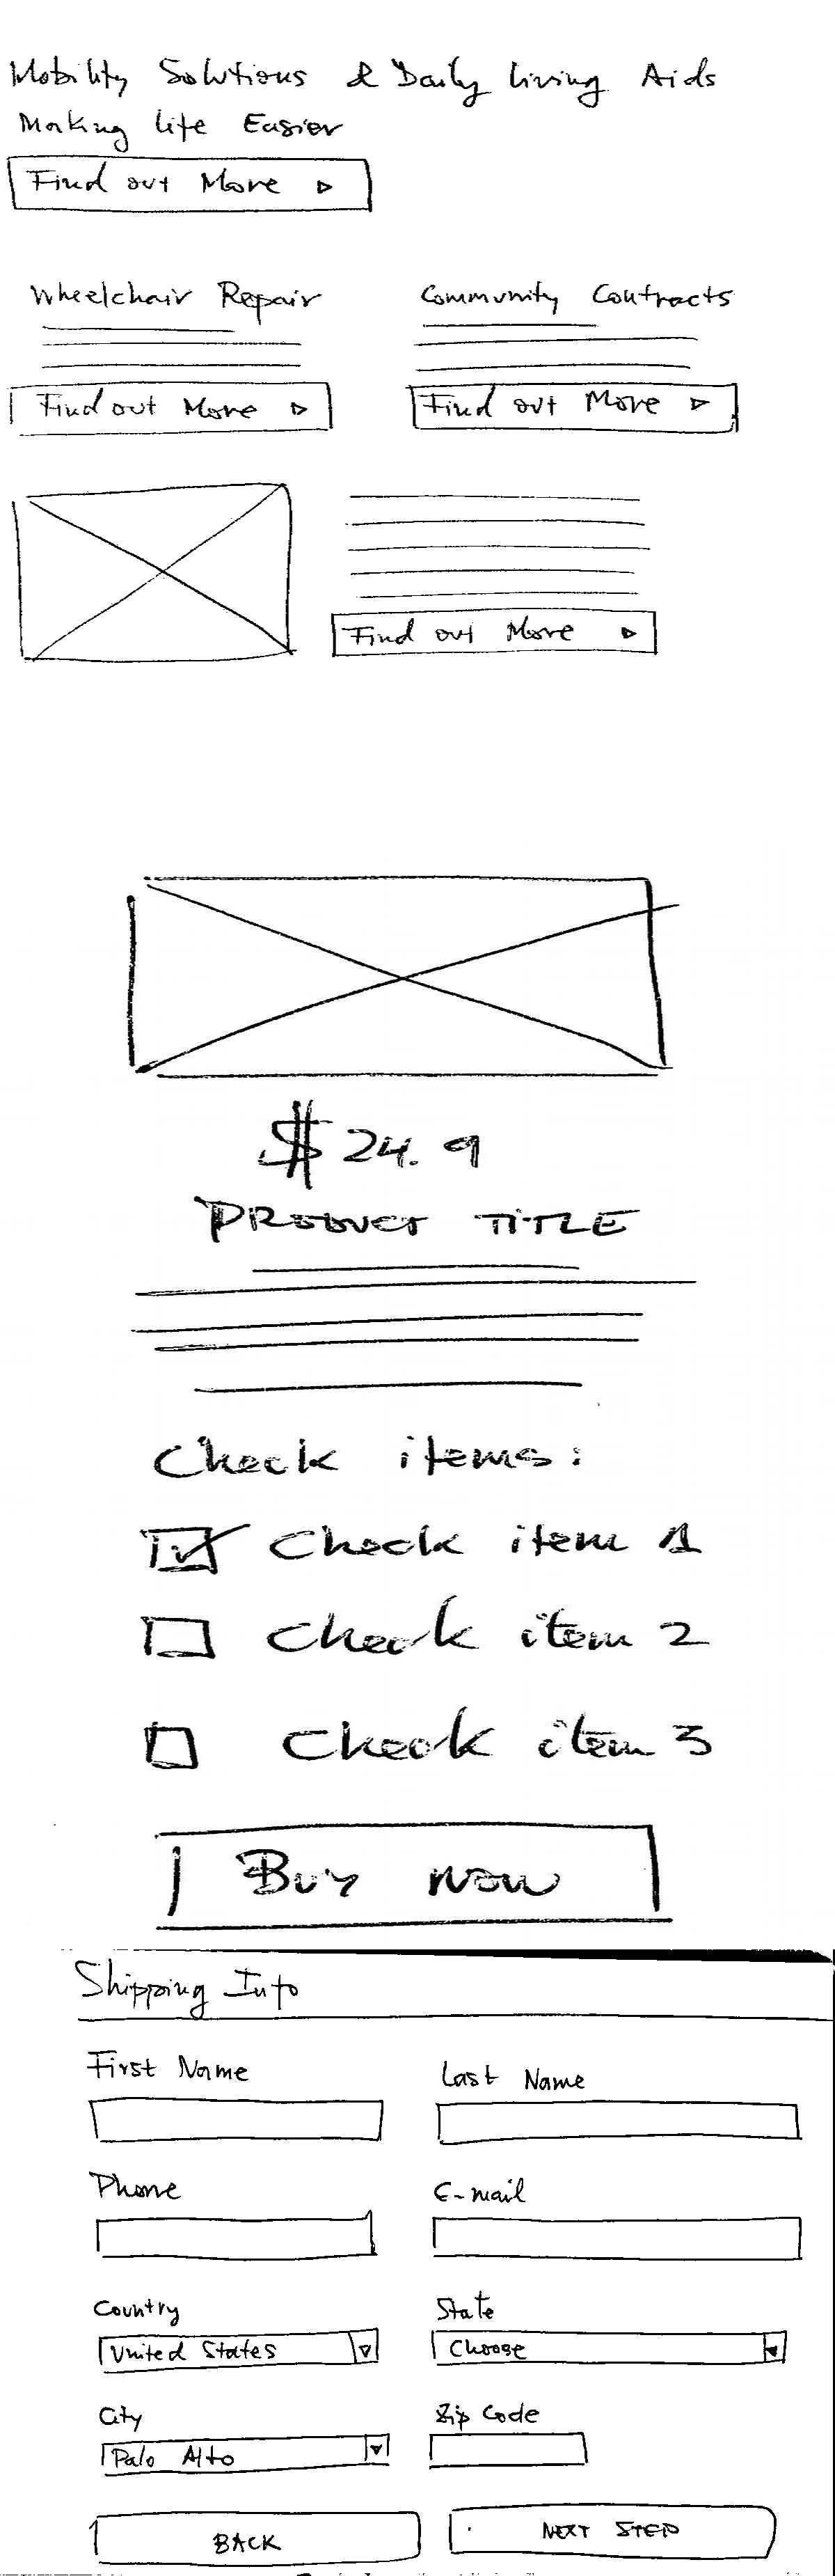 Mobility Solutions & Daily living Aids
Making life Easier
Find out More
Wheelchair Repair
Community Contracts
Find out More
Find out More
Find out More
$ 24.9
PRODUCT TITLE
Check items:
Check item 1
Check item 2
Check item 3
Buy now
Shipping Info
First Name
Last Name
Phone
E-mail
Country
State
United States
Choose
City
Zip Code
Palo Alto
BACK
NEXT STEP